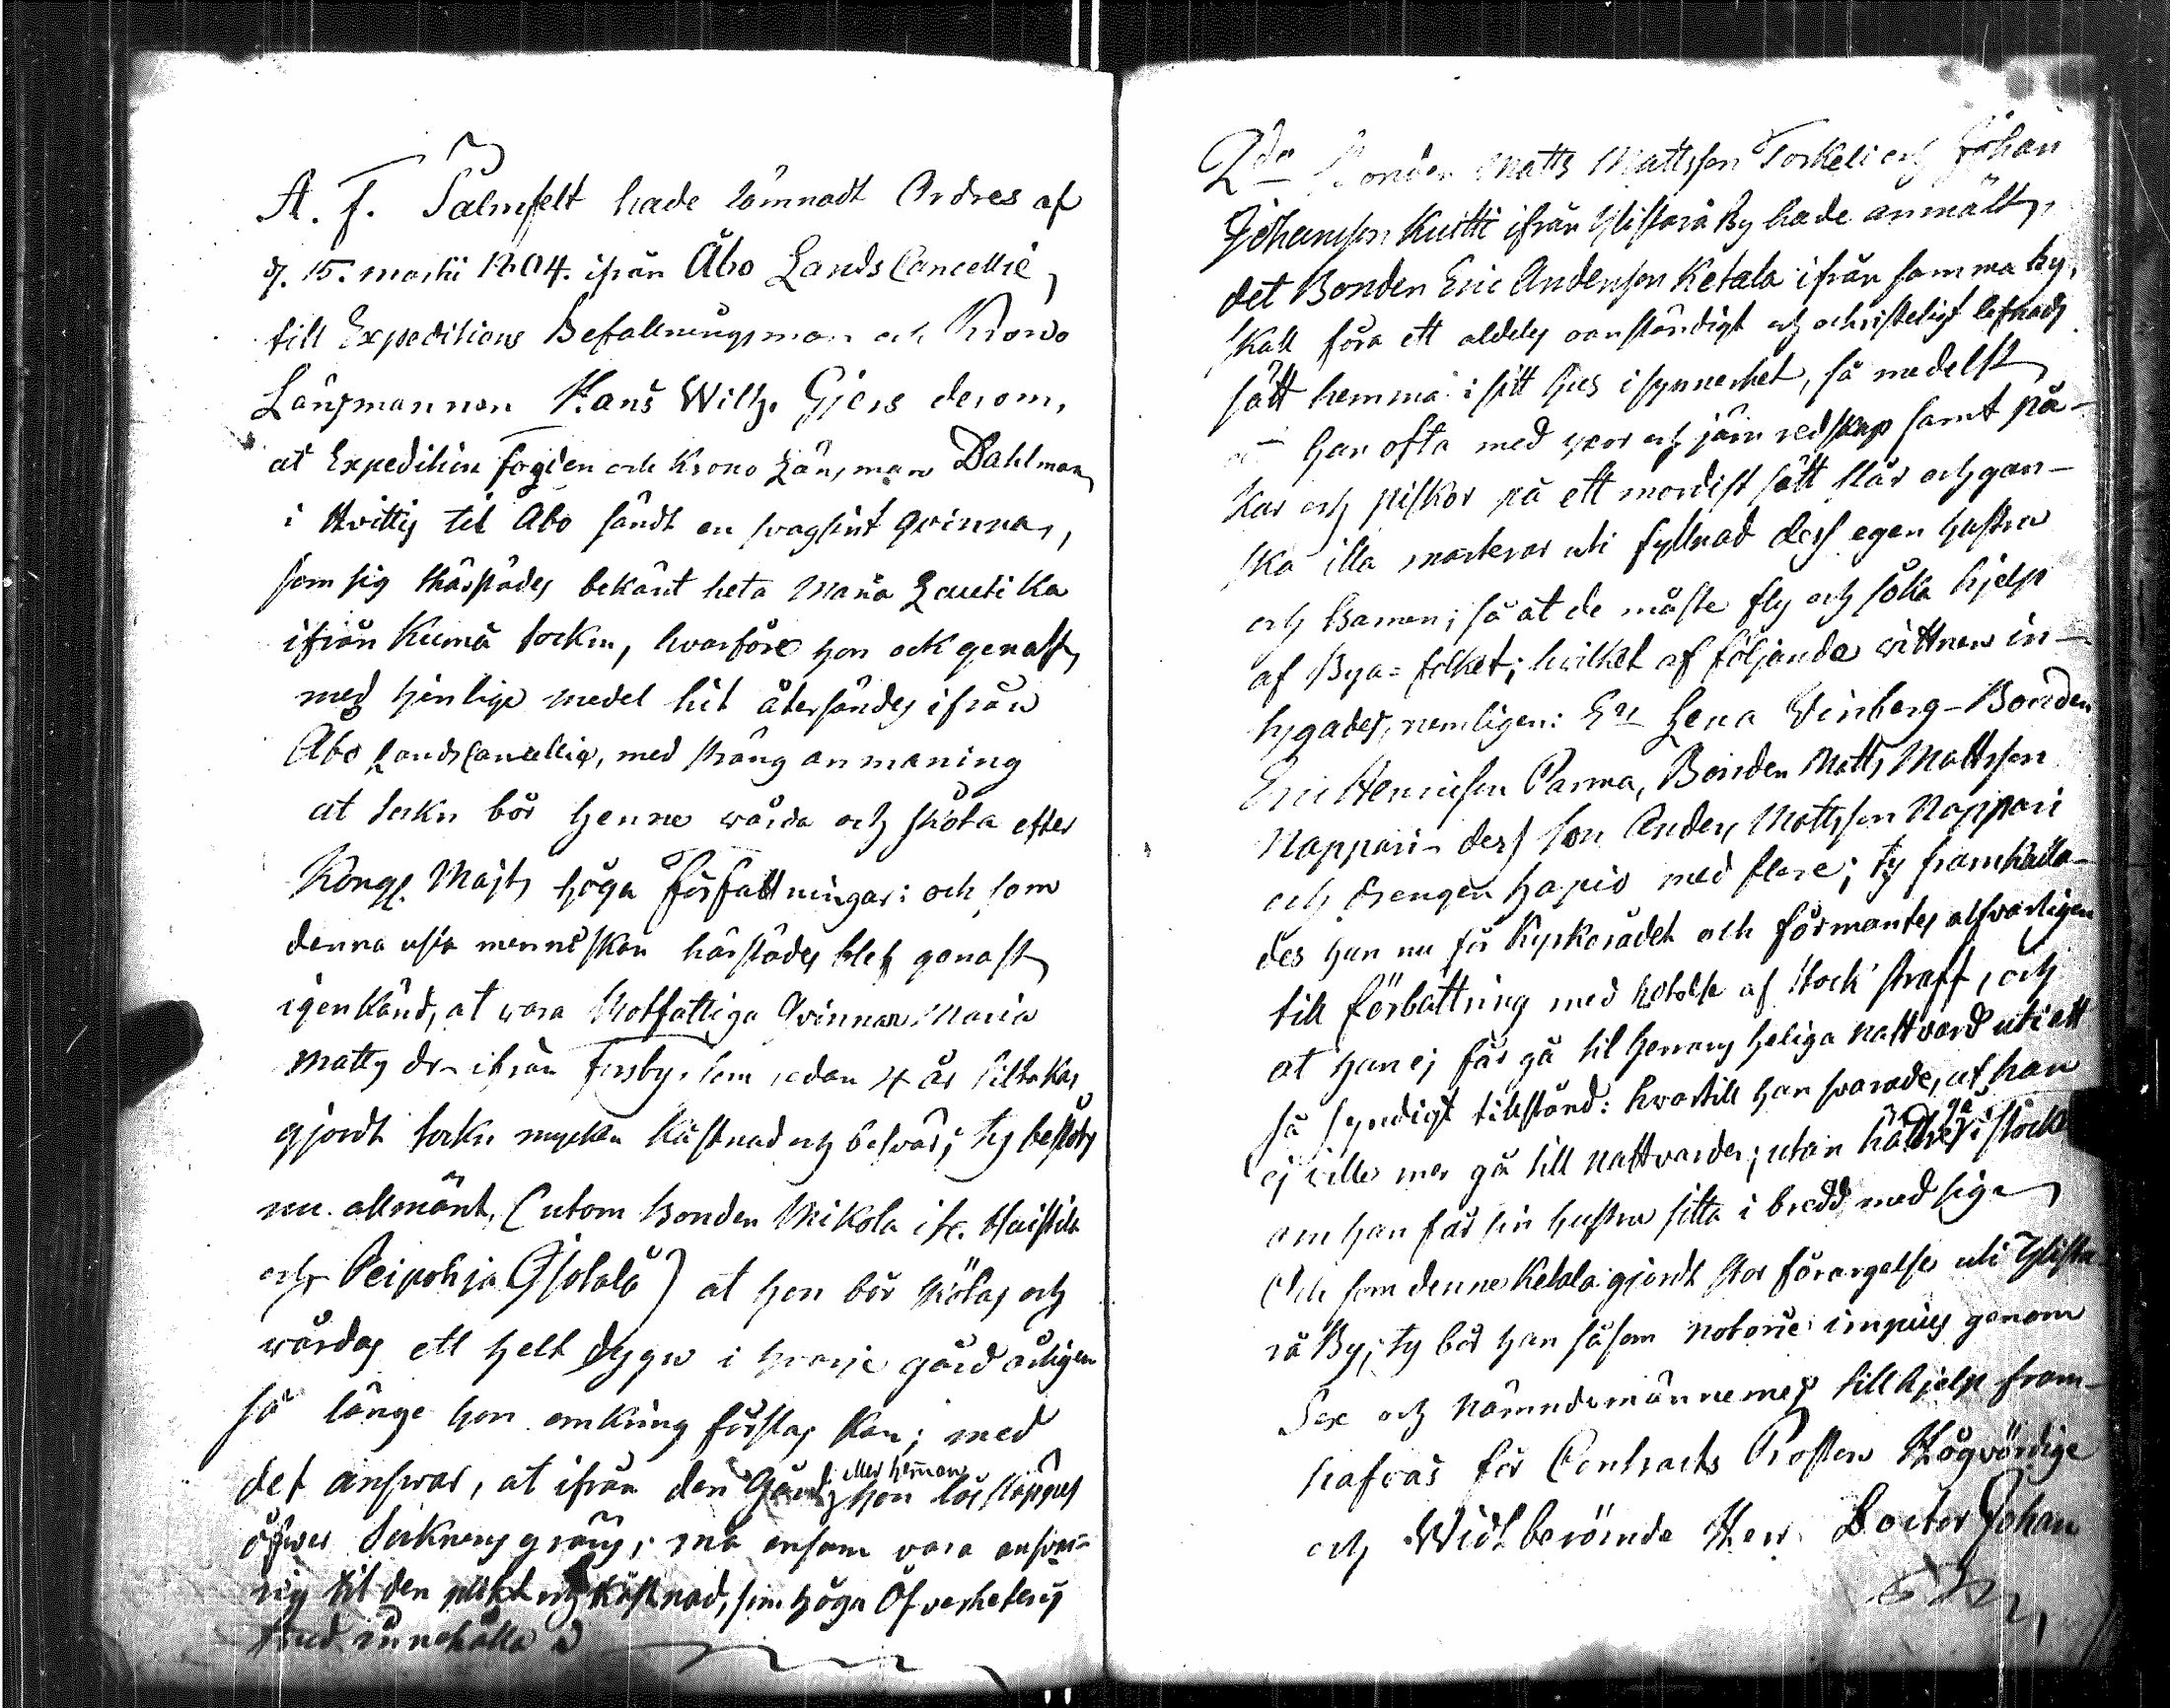 A. F. Palmfelt hade lämnadt Ordres af
d. 15. martii 1804. ifrån Åbo Lands Cancellie,
till Expeditions Befallningsman och Krono
Länsmannen Hans Wilh. Gjers derom,
at Expeditions fogden och Krono Länsman Dahlman
i Hvittis til Åbo sändt en svagsint qvinna,
som sig thärstädes bekänt heta Maria Lautika
ifrån Kumå sockn, hvarföre hon ock genast
med henlige medel hit återsändes ifrån
Åbo LandsCancellie, med sträng anmaning
at sockn bör henne wårda och sköta efter
Kongl. Majts höga författningar: och som
denna usla menniskan härstädes blef genast
igenkänd, at vara Rotfattiga Qvinnan Maria
Matts dr ifrån Forsby, som sedan 4 år tilbakas
gjordt sockn mycken kåstnad och besvär; ty beslöts
nu allmänt, (utom Bonden Mikola ifr. Haistila
och Peipohja Gjolala) at hon bör skötas och
wårdas ett helt dygn i hvarje gård årligen
så länge hon omkring förslas kan; med
det answar, at ifrån den Gård eller heman hon lös släppes
öfwer Socknens gräns, må ensam vara ansva-
rig til den plikt och kåstnad, som höga Öfverhetens
bud innehålla
2do Bonden Matts Mattsson Torkeli och Johan
Johansson Kuitti ifrån Ylistarå By hade anmält,
det Bonden Eric Andersson Ketala ifrån samma by,
skall föra ett aldeles oanständigt och ochristeligt lefnads
sätt hemma i sitt hus i synnerhet, så medelst
at han ofta med yxor och järn redskap samt på-
kar och piskor på ett mordiskt sätt slår och gan-
ska illa marterar uti fyllnad dess egen hustru
och Barnen; så at de måste fly och söka hjelp
af Bya-folket; hvilket af följande vittnen in-
tygades, nemligen: Lena Vinberg - Bonden
Eric Henricsson Parma, Bonden Matts Mattsson
Nappari - dess son Anders Mattsson Nappari
och Drengen Hapio med flere; ty framkalla-
des han nu för Kyrkorådet och förmantes alfvarligen
till förbättring med hotelse af Stock straff, och
at han ej får gå til Herrans heliga nattvard uti ett
så syndigt tillstånd: hvartill han svarade, at han
ej ville mer gå till nattvarden; utan hällre gå i stock
om han får sin hustru sitta i bredd med sig
Och som denne Ketala gjordt stor förargelse uti Ylista-
rå By; ty bör han såsom notorie impius genom
Sex och nämndemännernes tillhjelp fram-
kafvas för Contracts Prosten Högvördige
och Widtberömde Herr Doctor Johan